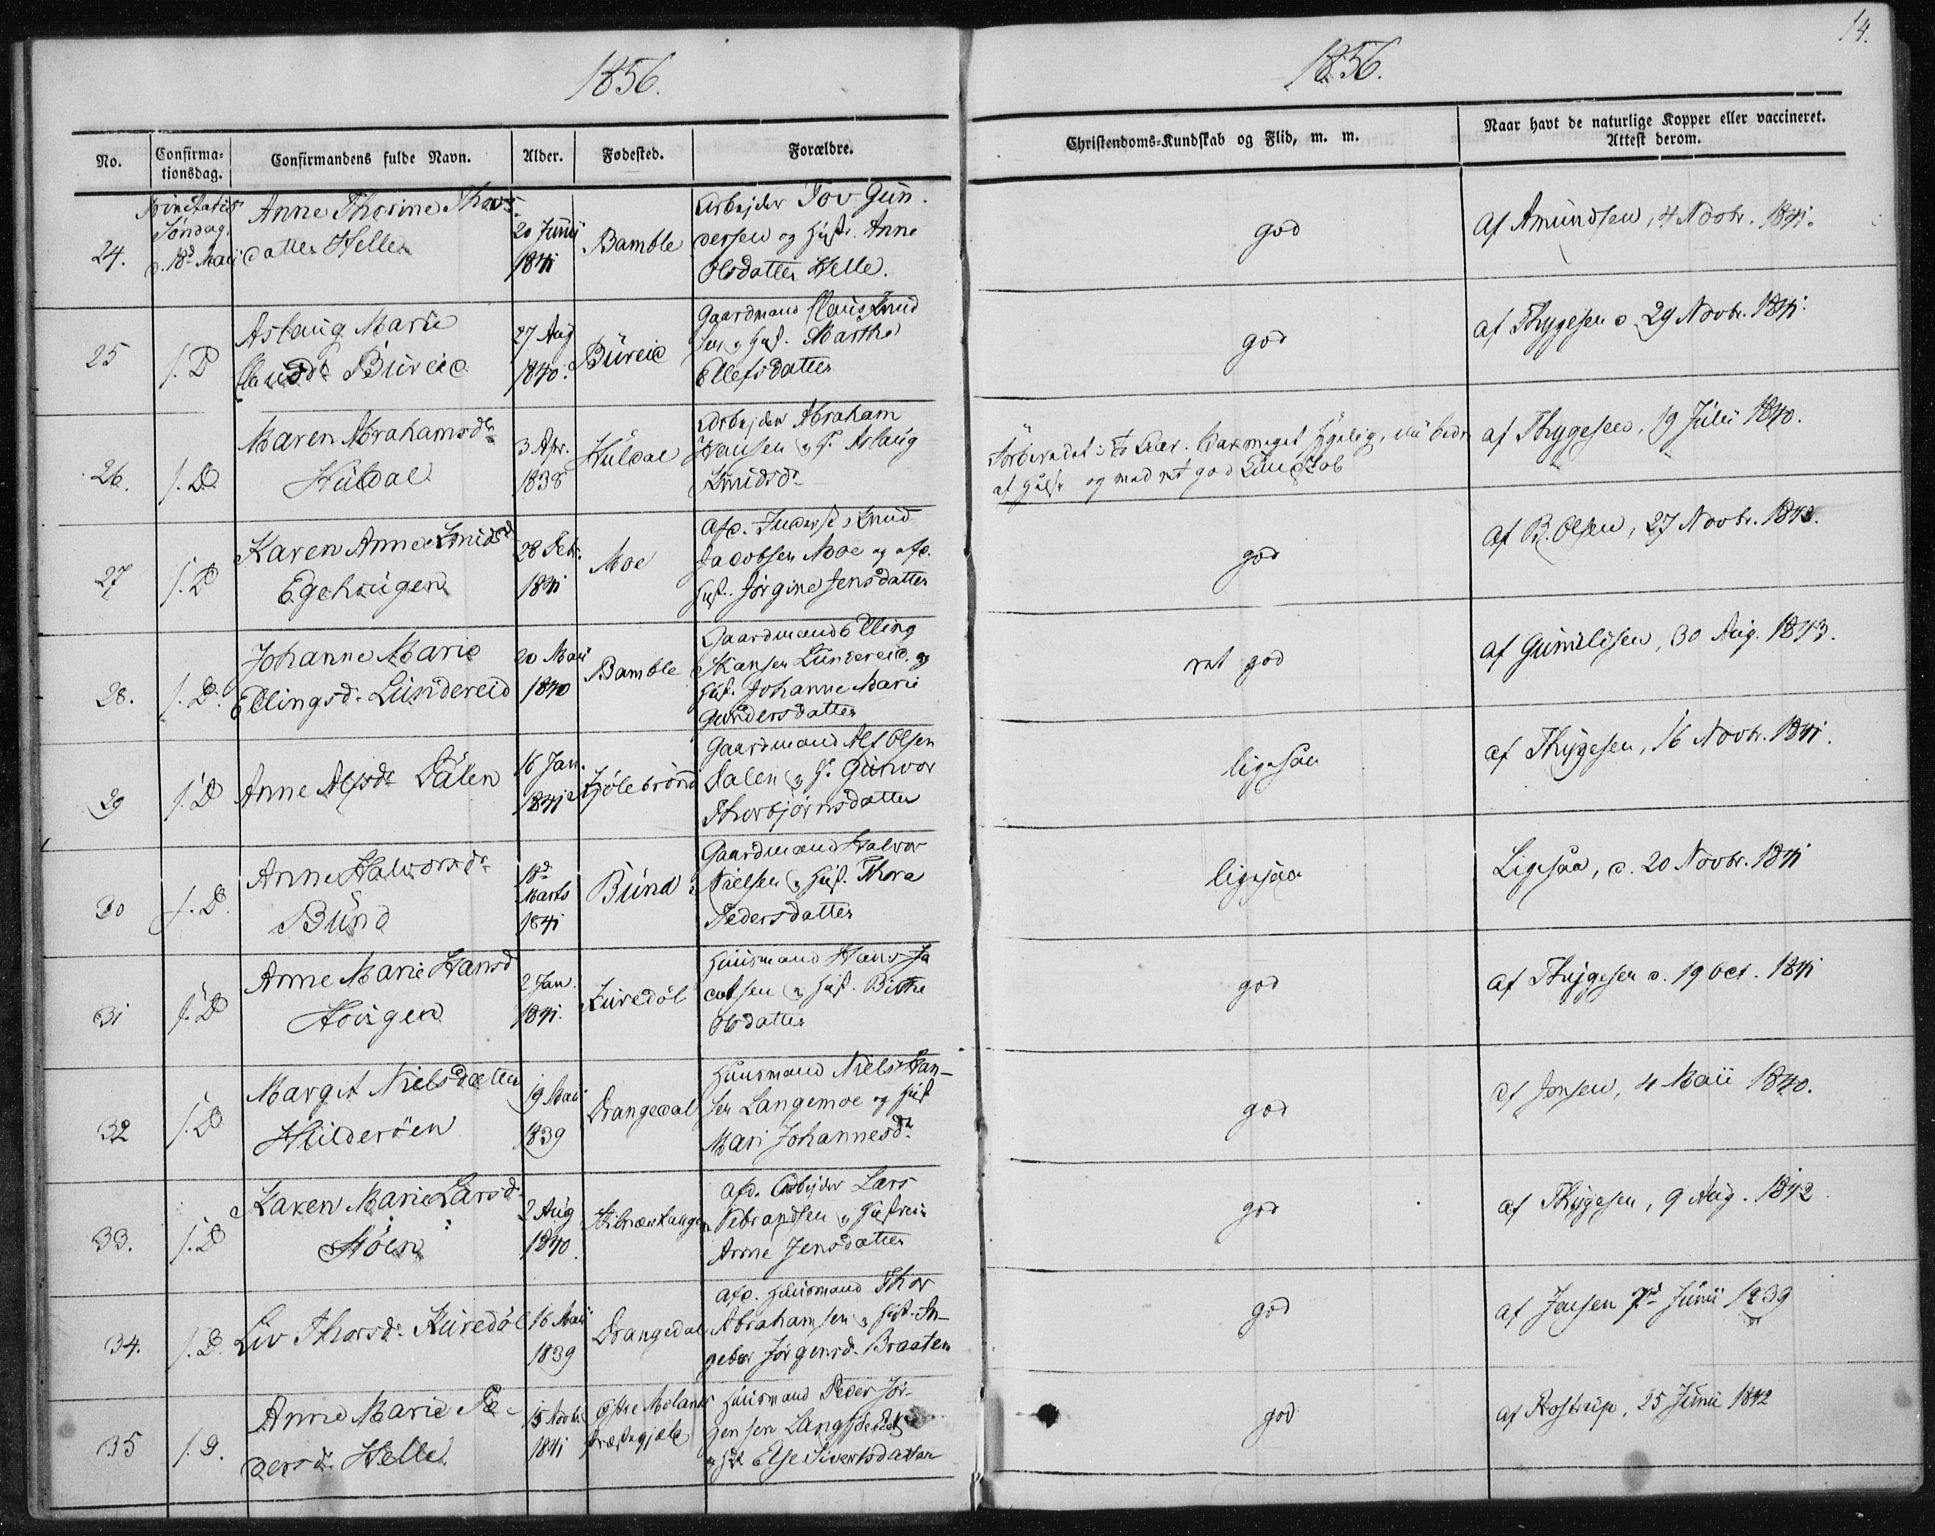 1856.
1856.
14.
No.
Confirma-
tionsdag.
Confirmandens fulde Navn.
Alder.
Fødested.
Forældre.
Christendoms-Kundskab og Flid, m. m.
Naar havt de naturlige Kopper eller vaccineret.
Attest derom.
24.
Trinitatis
Søndag
d. 18d Maii
Anne Thorine Thovs-
datter Helle
20 Junii
1841
Bamble
Arbejder Tov Gun-
dersen og Hust. Anne
Olsdatter Helle.
god
af Amundsen, 4 Novbr. 1841.
25
s. D
Aslaug Marie
Clausdr Bureid
27 Aug
1840.
Büreid
Gaardmand Claus Knud
sen og Hust. Marthe
Ellefsdatter
god
af Thygesen d. 29 Novbr. 1841.
26.
s. D.
Maren Abrahamsdr
Huldal
3 Apr.
1838
Huldal
Arbejder Abraham
Hansen og H. Aslaug
Knudsdr
Forberedet i to Aar. Var meget sygelig, nu bedre
af Helse og med ret god Kundskab
af Thygesen, 19 Julii 1840.
27
s. D
Karen Anne Knudsd
Egehaugen
28 Febr.
1841
Moe
Afd. Inderst Knud
Jacobsen Moe og afd.
Hust. Jørgine Jensdatter
god
af B. Olsen, 27 Novbr. 1843.
28.
s. D.
Johanne Marie
Ellingsd. Lundereid
20 Maii
1840
Bamble
Gaardmand Elling
Hansen Lundereid og
Hust. Johanne Marie
Gundersdatter
ret god
af Gundersen, 30 Aug. 1843.
29
s. D
Anne Alfsdr Dalen
16 Jan.
1841
Kjølebrønd
Gaardmand Alf Olsen
Dalen og H. Gunvor
Thorbjørnsdatter
ligesaa
af Thygesen, 16 Novbr. 1841.
30
s. D.
Anne Halvorsdr
Bünd
18d
Marts
1841
Bünd
Gaardmand Halvor
Nielsen og Hust. Thora
Pedersdatter
ligesaa
Ligesaa, d. 20 Novbr. 1841
31
s. D
Anne Marie Hansd
Haugen
2 Jan.
1841.
Kuredøl
Huusmand Hans Ja
cobsen og Hust. Birthe
Olsdatter
god
af Thygesen d. 19 Oct. 1841
32
s. D
Margit Nielsdatter
Hulderøen
19 Maii
1839
Drangedal
Huusmand Niels Han-
sen Langemoe og Hust
Mari Johannesdr
god
af Jensen, 4 Maii 1840.
33.
s. D
Karen Marie Larsd.
Støen
2 Aug
1840.
Afd. Arbejder Lars
og Hustrue
Anne Jensdatter
god
af Thygesen, 9 Aug. 1842
34.
s. D.
Liv Thorsdr Kuredøl
16 Maii
1839
Drangedal
Afd. Huusmand Thor
Abrahamsen og Hust. In-
gebor Jørgensd. Braaten
god
af Jensen 7d Junii 1839
35
s. D.
Anne Marie Pe-
dersdr Helle
15 Novbr
1841
Østre Molands
Præstegjeld
Huusmand Peder Jør-
gensen
og Hust Else Sivertsdatter
god
af Rostrup, 25 Junii 1842